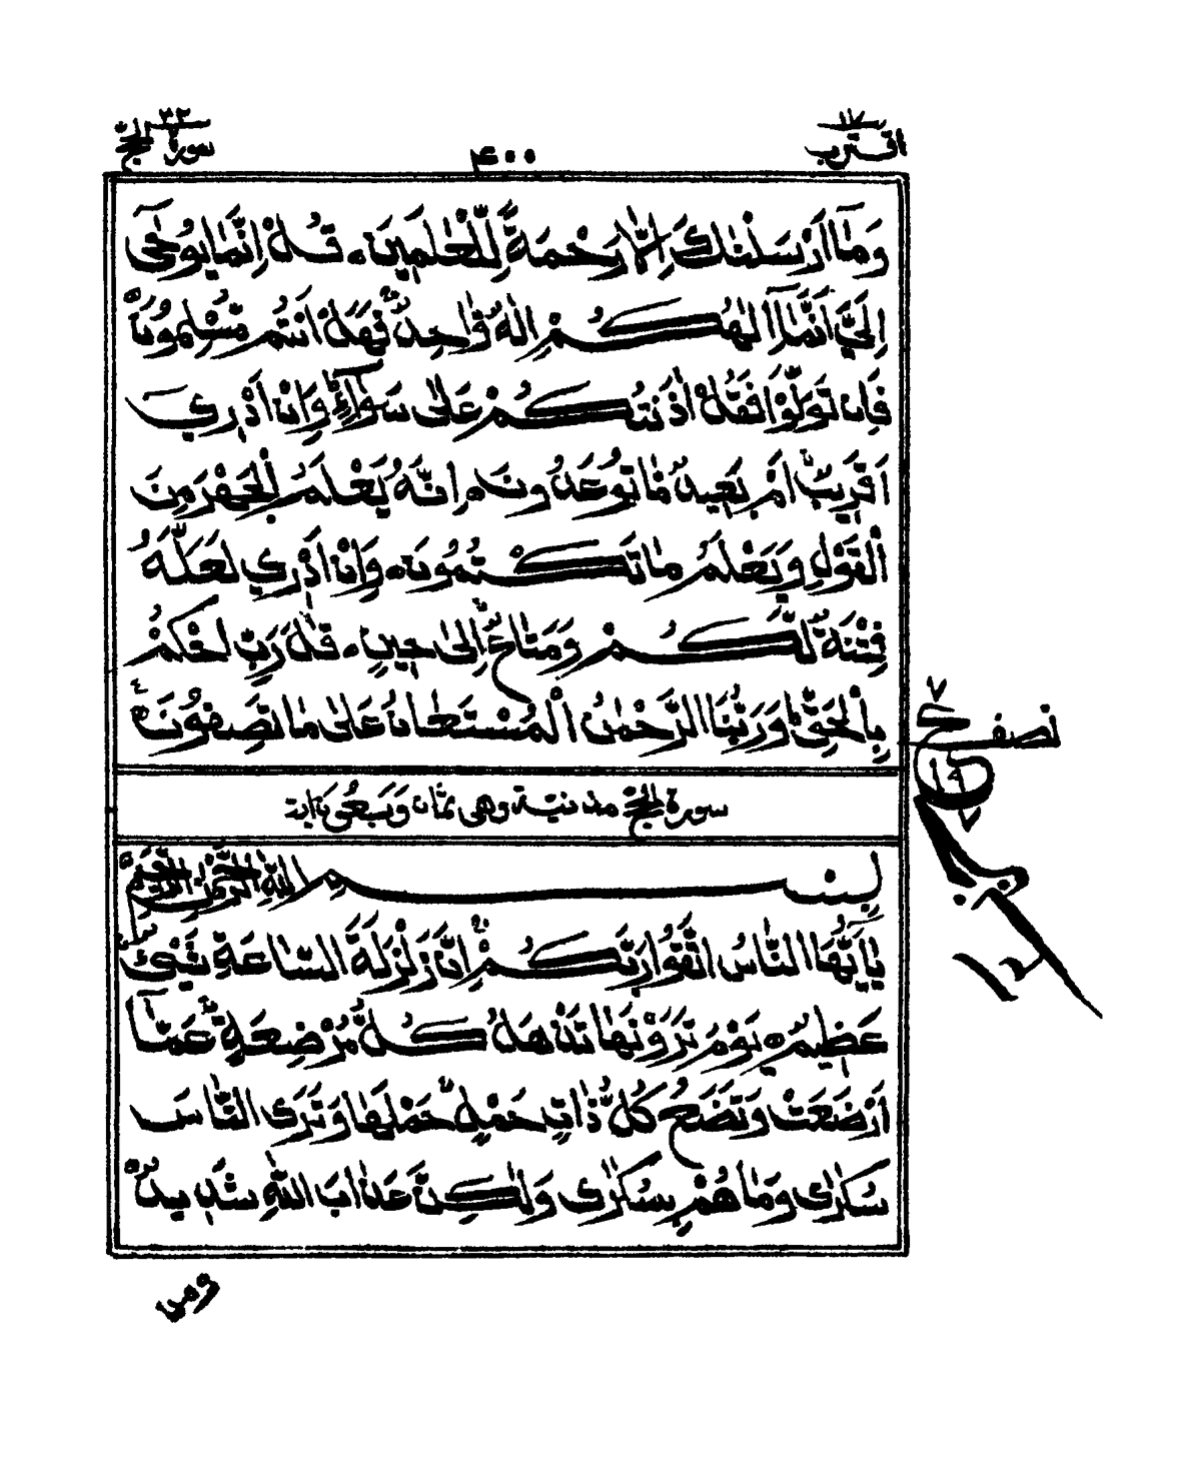 اقترب ١٧
٤٠٠
سورة الحج ٢٢
وَمَآ اَرْسَلْنٰكَ اِلَّا رَحْمَةً لِّلْعٰلَمِيْنَ ۰ قُلْ اِنَّمَا يُوْحٰٓى
اِلَيَّ اَنَّمَآ اِلٰهُكُمْ اِلٰهٌ وَّاحِدٌ ۚ فَهَلْ اَنْتُمْ مُّسْلِمُوْنَ ۰
فَاِنْ تَوَلَّوْا فَقُلْ اٰذَنْتُكُمْ عَلٰى سَوَآءٍ ۚ وَاِنْ اَدْرِيْ
اَقَرِيْبٌ اَمْ بَعِيْدٌ مَّا تُوْعَدُوْنَ ۰ اِنَّهٗ يَعْلَمُ الْجَهْرَ مِنَ
الْقَوْلِ وَيَعْلَمُ مَا تَكْتُمُوْنَ ۰ وَاِنْ اَدْرِيْ لَعَلَّهٗ
فِتْنَةٌ لَّكُمْ وَمَتَاعٌ اِلٰى حِيْنٍ ۰ قٰلَ رَبِّ احْكُمْ
بِالْحَقِّ ۚ وَرَبُّنَا الرَّحْمٰنُ الْمُسْتَعَانُ عَلٰى مَا تَصِفُوْنَ ۰
نصف
ع
سورة الحج مدنية وهى ثمان وسبعون اية
بِسْمِ اللّٰهِ الرَّحْمٰنِ الرَّحِيْمِ
يٰٓاَيُّهَا النَّاسُ اتَّقُوْا رَبَّكُمْ ۚ اِنَّ زَلْزَلَةَ السَّاعَةِ شَيْءٌ
عَظِيْمٌ ۰ يَوْمَ تَرَوْنَهَا تَذْهَلُ كُلُّ مُرْضِعَةٍ عَمَّآ
اَرْضَعَتْ وَتَضَعُ كُلُّ ذَاتِ حَمْلٍ حَمْلَهَا وَتَرَى النَّاسَ
سُكٰرٰى وَمَا هُمْ بِسُكٰرٰى وَلٰكِنَّ عَذَابَ اللّٰهِ شَدِيْدٌ ۰
ومن